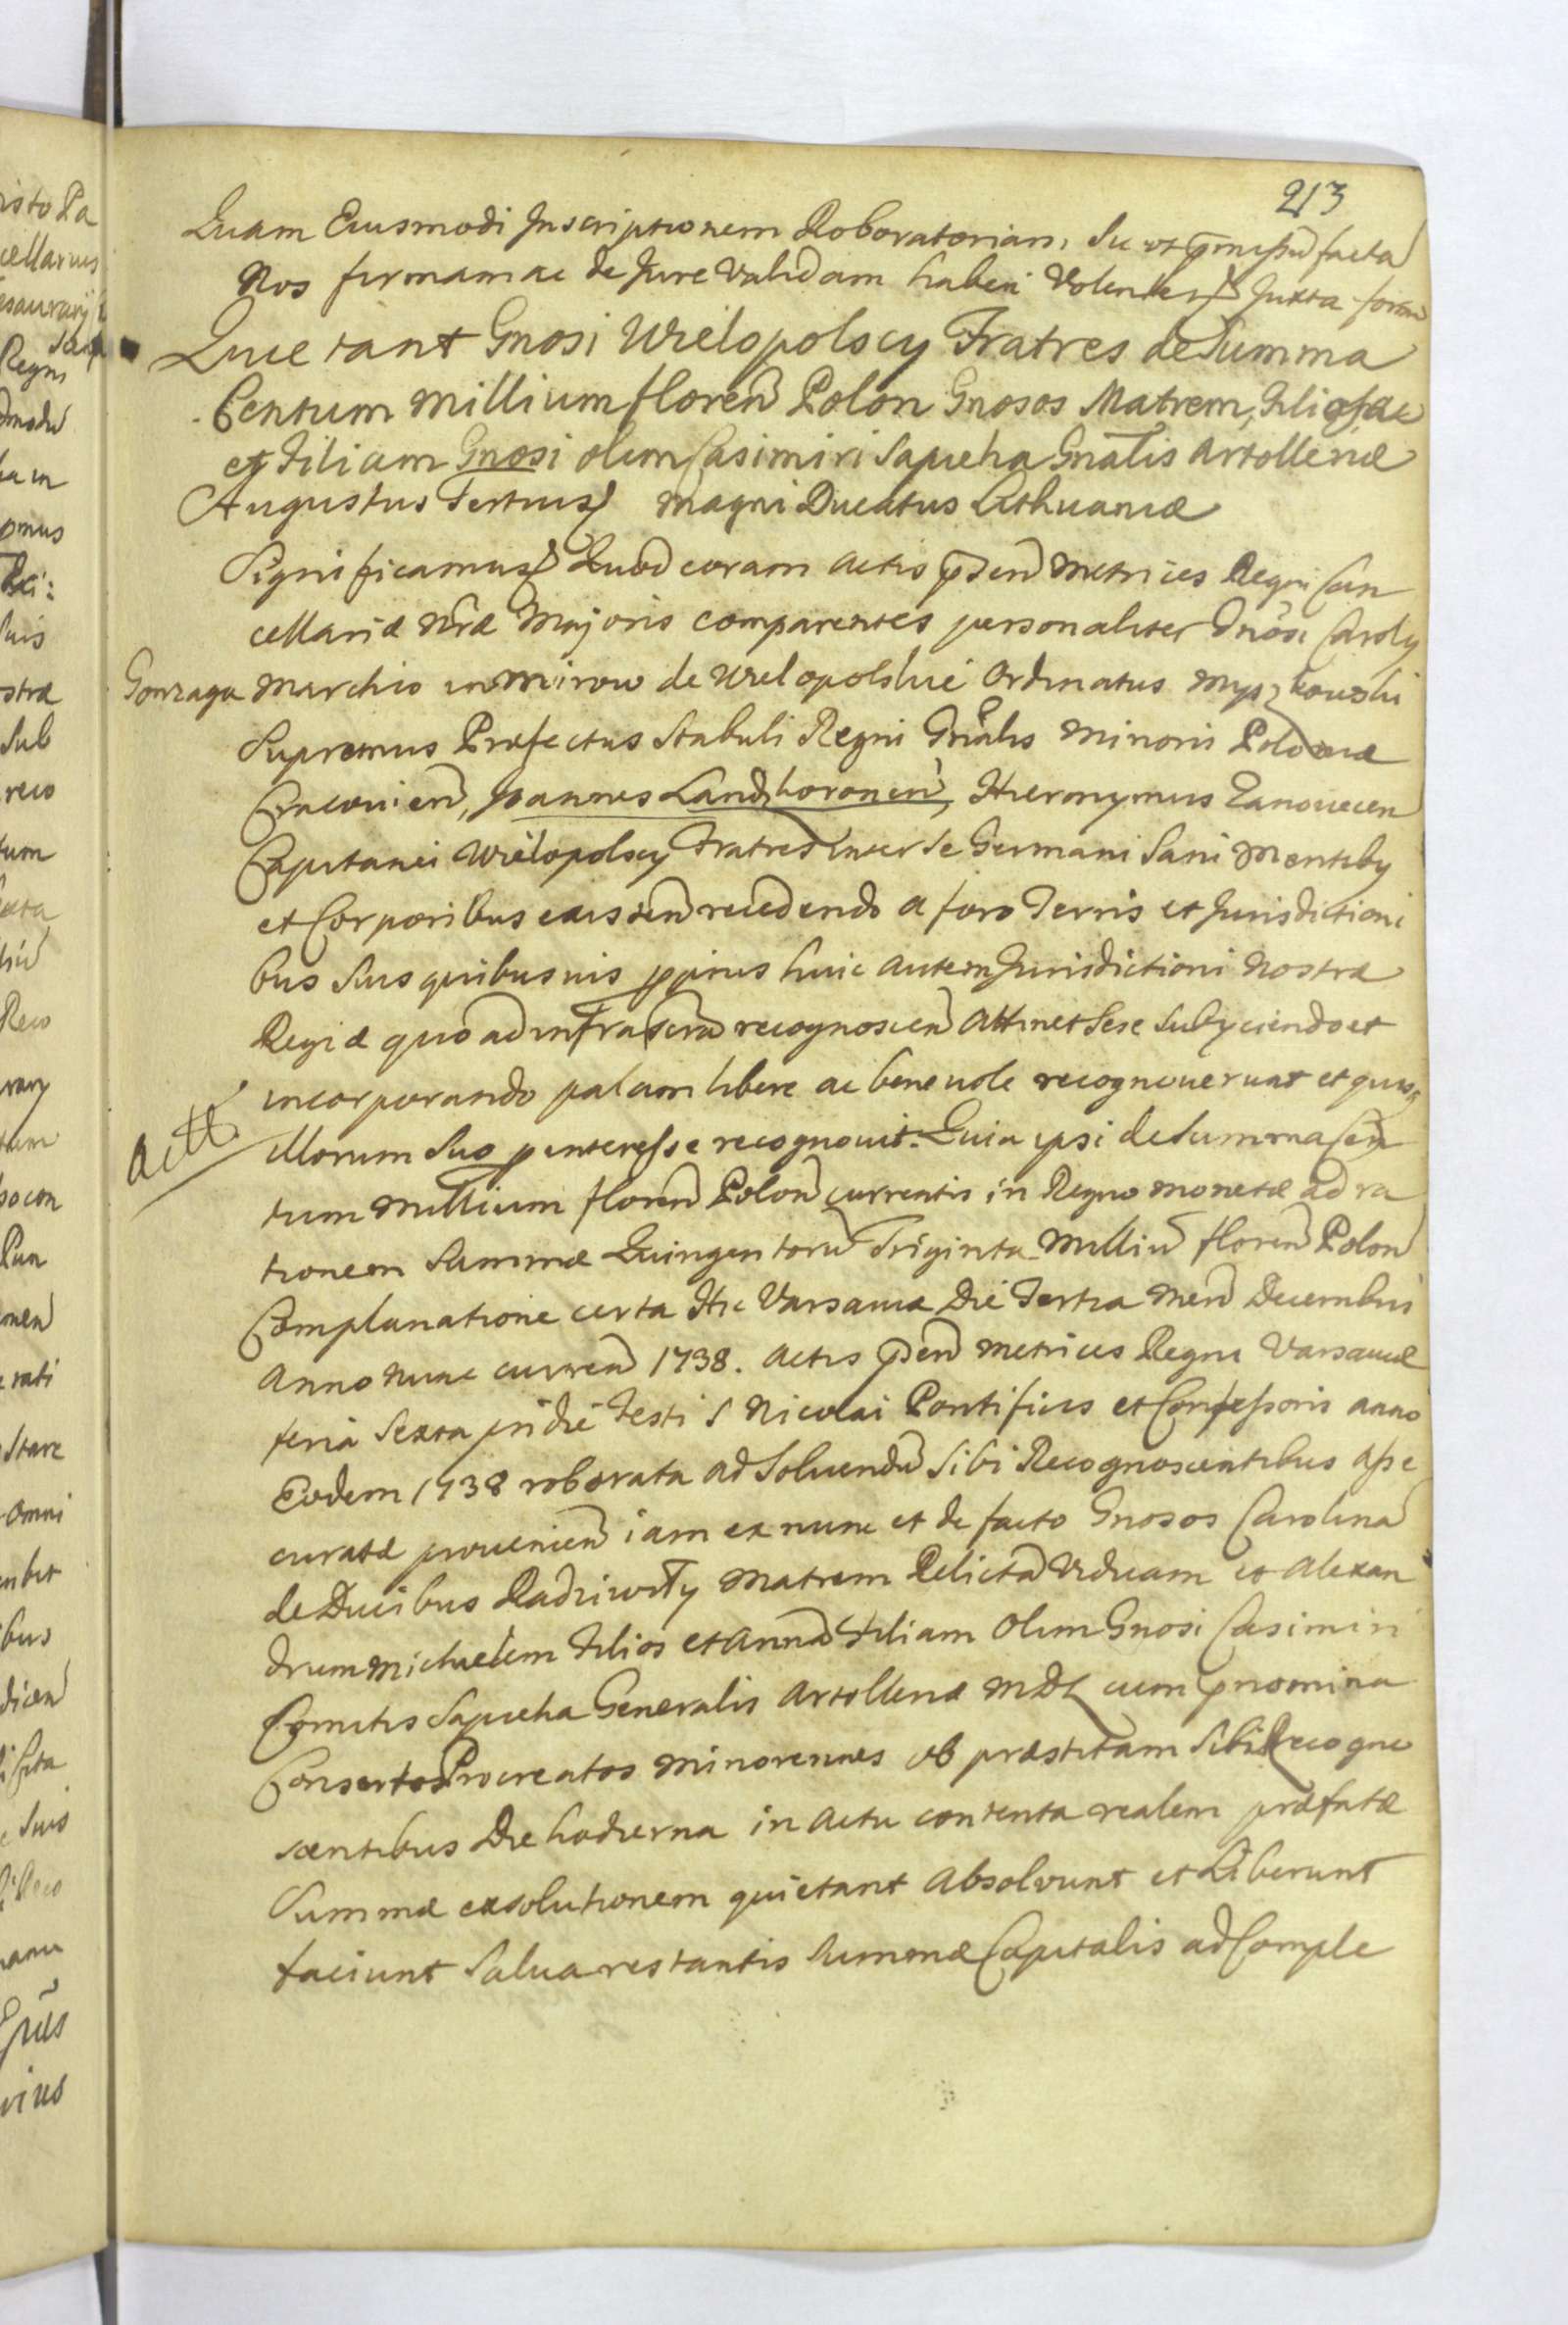 213
Quam Eiusmodi Inscriptionem Roboratoriam, Sic ut facta
Nos firmam ac de Jure Validam haberi Volentes Juxta form
Quietant Gnosi Wielopolscy Fratres de Summa
Centum Millium floren Polon Gnosos Matrem, Filios ac
et Filiam Gnosi olim Casimiri Sapieha Gnalis Artolleriæ
Augustus Tertius Magni Ducatus Lithuaniæ
Significamus Quod coram Actis pден Metrices Regni Can
cellariæ Nræ Majoris comparentes personaliter Gnosi Caroly
Gonzaga Marchio in Mirow de Wielopolskie Ordinatus Myszkowski
Supremus Præfectus Stabuli Regni Gnalis Minoris Poloniæ
Cracovien, Joannes Landskoronen, Hieronymus Zanovecen
Capitanei Wielopolscy Fratres inter Se Germani Sani Mentiby
et Corporibus existen recedendo a foro Terris et Jurisdictioni
bus Suis quibusvis ppriis huic autem Jurisdictioni Nostræ
Regiæ quo ad infrascrm recognoscen Attinet Sese Subijciendo et
incorporando palam libere ac benevole recognoverunt et quivis
Actt
illorum Suo p interesse recognovit. Quia ipsi de Summa Cen
tum Millium floren Polon currentis in Regno monetæ ad ra
tionem Summæ Quingentoru Triginta Milliu floren Polon
Complanatione certa Hic Varsaviæ Die Tertia Men Decembris
Anno nunc curren 1738. Actis pden Metrices Regni Varsaviæ
feria Sexta pridie Festi S Nicolai Pontificis et Confessoris anno
Eodem 1738 roborata ad Solvendu Sibi Recognoscentibus Asse
curatæ provenien iam ex nunc et de facto Gnosos Carolina
de Ducibus Radziwiłły Matrem Relicta Viduam et Alexan
drum Michaelem Filios et Anna Filiam Olim Gnosi Casimiri
Comitis Sapieha Generalis Artolleriæ MDL cum pnomina
Consorte Procreatos Minorennes ob præstitam Sibi Recogno
scentibus Die hodierna in Actu contenta realem præfatæ
Summæ exsolutionem quietant Absolvunt et Liberunt
faciunt Salva restantis Summæ Capitalis ad Comple